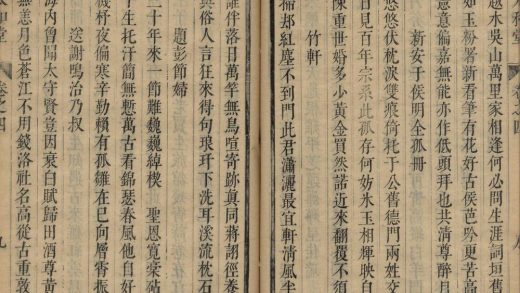 越水吳山萬里家相逢何必問生涯詞垣舊
如玉粉署新看筆有花好古侯芭吟更苦高
意偏嘉無能亦作低頭拜也共清尊醉月
新安于侯明全孤冊
悠悠伏枕淚雙痕倚托于公舊德門兩姓交
日見百年宗系此孤存何妨氷玉相輝映白
陳重世婚多少黃金買然諾近來翻覆不須
竹軒
掃却紅塵不到門此君瀟灑最宜軒清風半
誰伴落日萬竿無鳥喧寄跡真同蔣詡徑卷
與俗人言狂來得句琅玕下洗耳溪流枕石
題彭節婦
二十年來一節雕巍巍綽楔 聖恩寬藁砧
于生托汗簡無慙萬古看錦瑟春風他自好
機杼夜偏寒辛勤賴有孤雛在已向層霄振
送謝鴨治乃叔
海内曾聞太守賢豈因衰白賦歸田酒尊黃
如無恙月色蒼江不用錢洛社名高從古重敦
卷之四
九